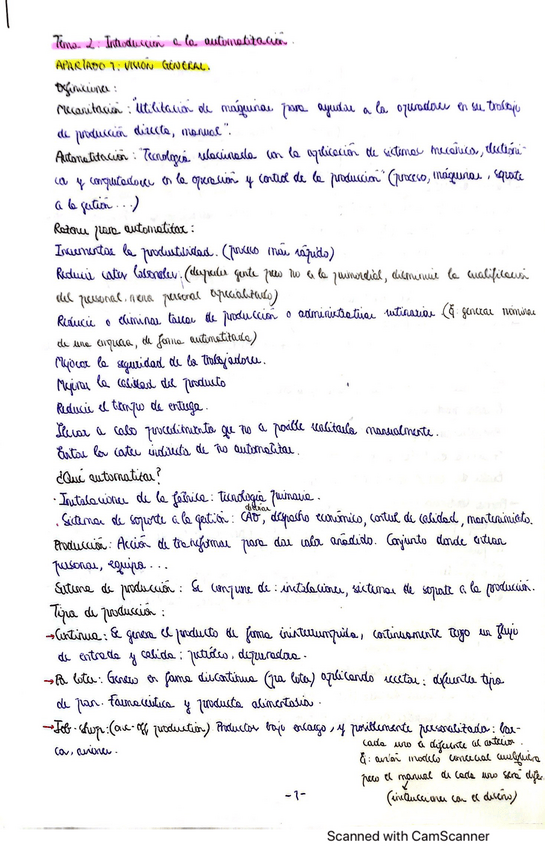 Tema 2: Introducción a la automatización.
APARTADO 1: VISIÓN GENERAL.
Definiciones:
Mecanización: "Utilización de máquinas para ayudar a los operadores en su trabajo
de producción directa, manual".
Automatización: "Tecnología relacionada con la aplicación de sistemas mecánicos, electróni-
cos y computadores en la operación y control de la producción" (proceso, máquinas, soporte
a la gestión...)
Razones para automatizar:
Incrementar la productividad. (proceso más rápido)
Reducir costes laborales. (despedir gente pero no es lo primordial, disminuir la cualificación
del personal. menos personal especializado)
Reducir o eliminar tareas de producción o administrativas rutinarias (Ej: generar nóminas
de una empresa, de forma automatizada)
Mejorar la seguridad de los trabajadores.
Mejorar la calidad del producto
Reducir el tiempo de entrega.
Llevar a cabo procedimientos que no es posible realizarlos manualmente.
Evitar los costes indirectos de no automatizar.
¿Qué automatizar?
· Instalaciones de la fábrica: tecnología primaria.
· Sistemas de soporte a la gestión: CAD, despacho económico, control de calidad, mantenimiento.
Producción: Acción de transformar para dar valor añadido. Conjunto donde entran
personas, equipos...
Sistema de producción: Se compone de: instalaciones, sistemas de soporte a la producción.
Tipos de producción:
→Continua: Se genera el producto de forma ininterrumpida, continuamente tengo un flujo
de entrada y salida: petróleo, depuradora.
→Por lotes: Genero en forma discontinua (por lotes) aplicando recetas: diferentes tipos
de pan. Farmacéutica y productos alimentarios.
→Job-shop: (one-off production) Productos bajo encargo, y posiblemente personalizados: bar-
cos, aviones.
cada uno es diferente al anterior.
Ej: avión modelo comercial cualquiera
pero el manual de cada uno será dife.
(instrucciones con el diseño)
-1-
Scanned with CamScanner